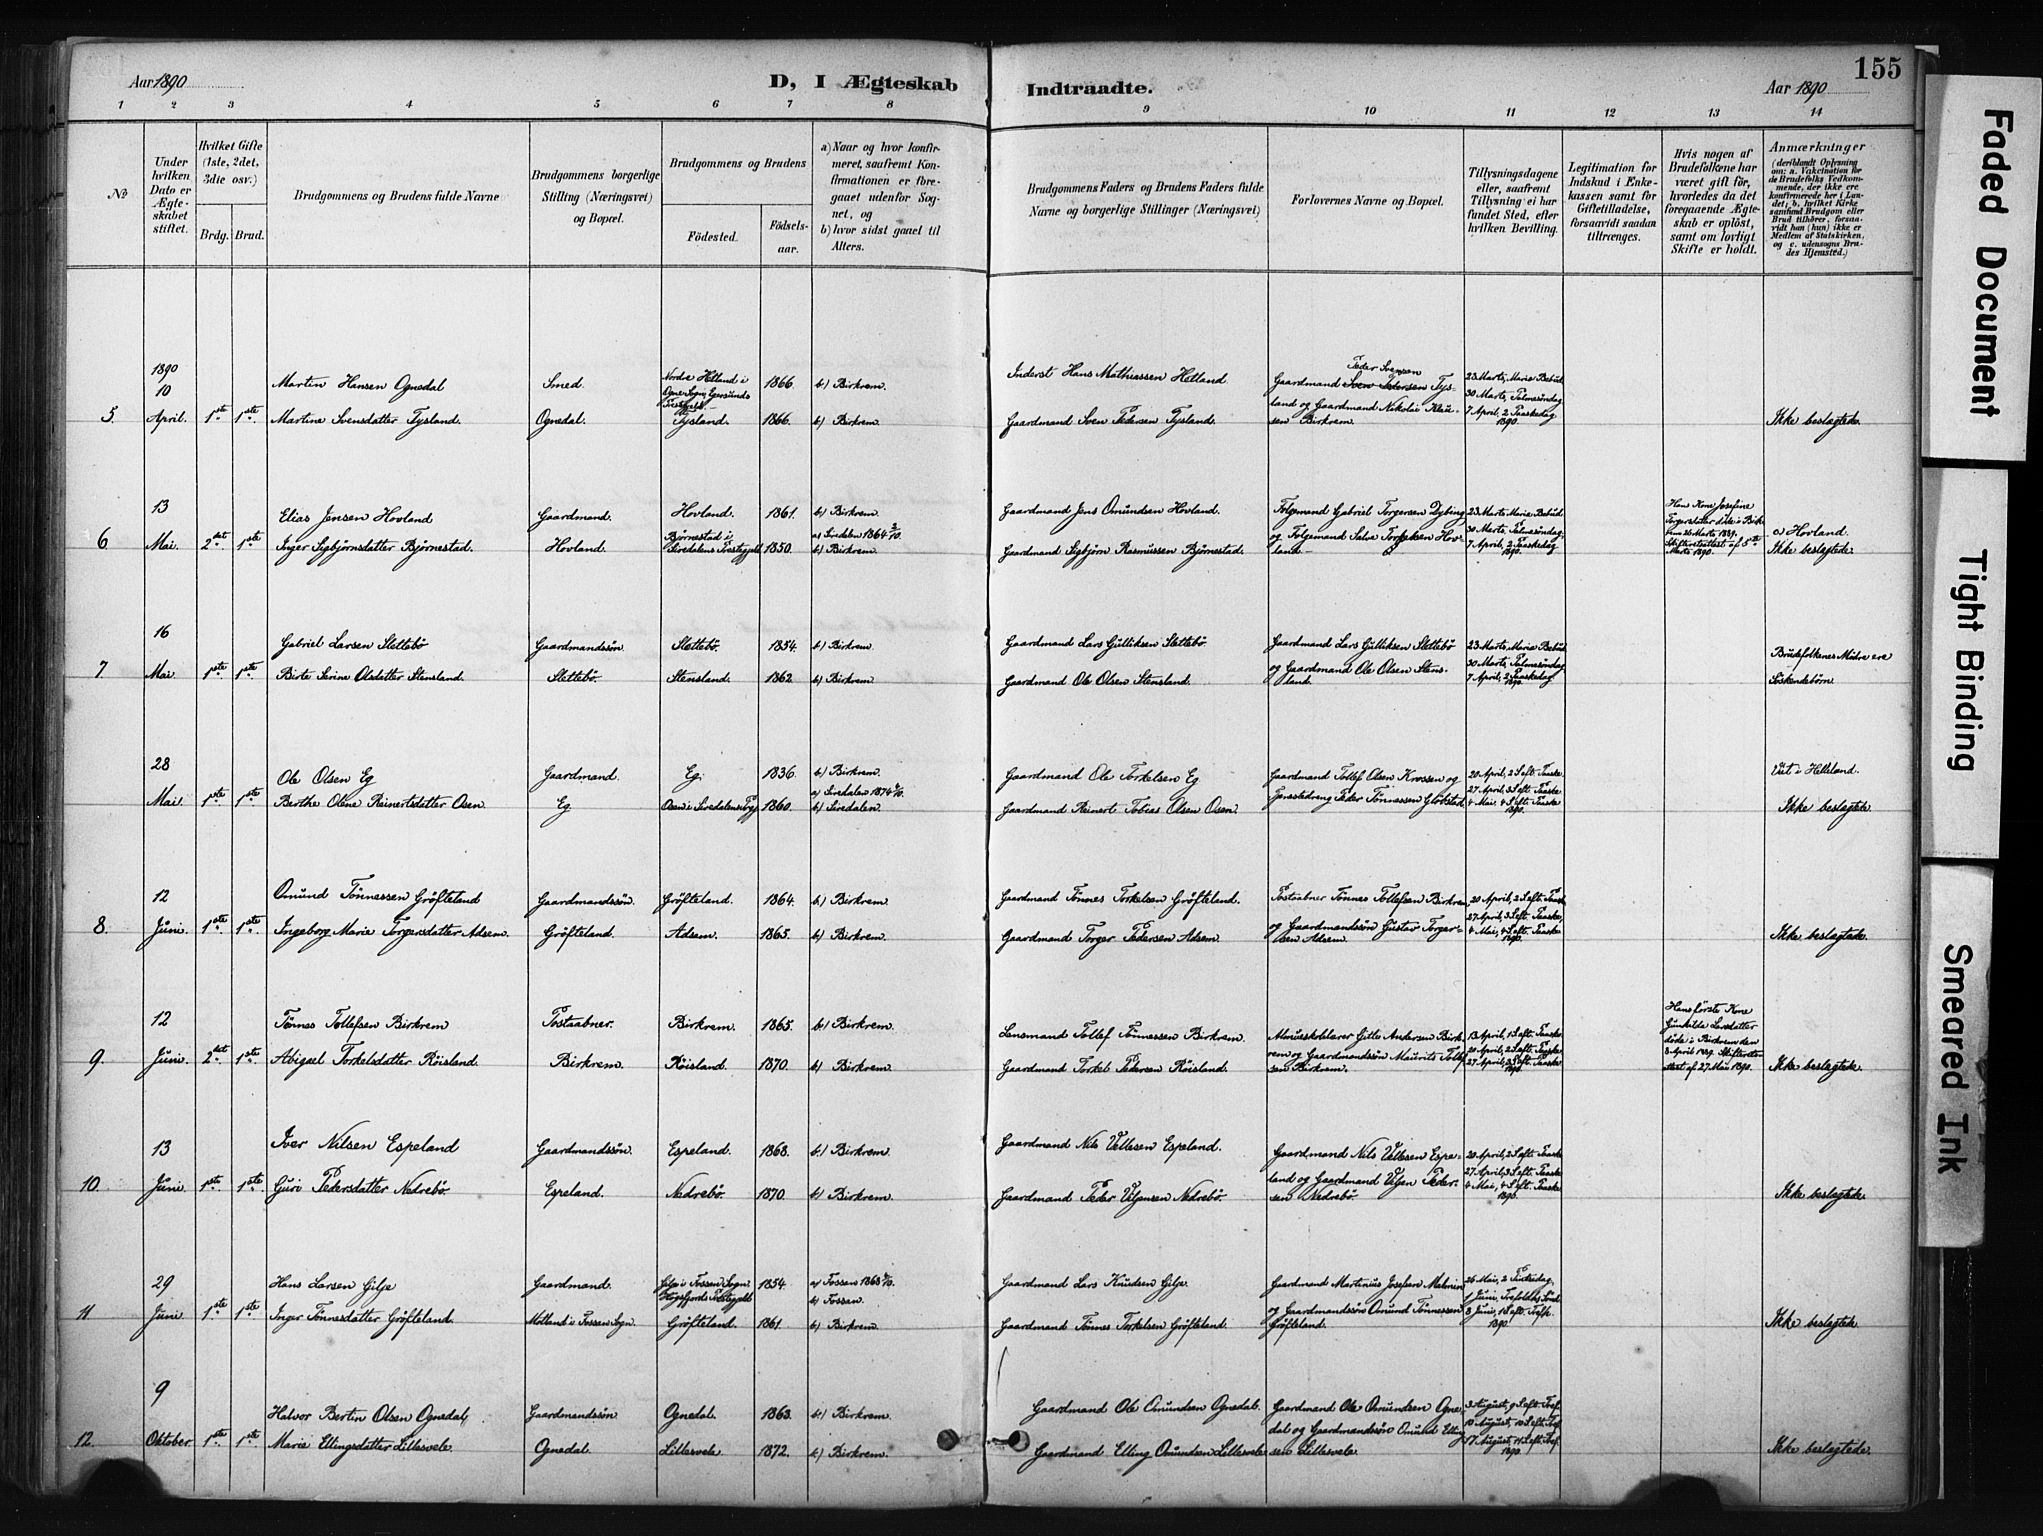 155
Aar 1890
D, I Ægteskab
Indtraadte.
Aar 1890
1 2 3 4 5 6 7 8 9 10 11 12 13 14
No
Under hvilken Dato er Ægteskabet stiftet.
Hvilket Gifte (1ste, 2det, 3die osv.)
Brdg. Brud.
Brudgommens og Brudens fulde Navne
Brudgommens borgerlige Stilling (Næringsvei) og Bopæl.
Brudgommens og Brudens
Födested.
Födselsaar.
a) Naar og hvor konfirmeret, saafremt Konfirmationen er foregaaet udenfor Sognet, og
b) hvor sidst gaaet til Alters.
Brudgommens Faders og Brudens Faders fulde Navne og borgerlige Stillinger (Næringsvei)
Forlovernes Navne og Bopæl.
Tillysningsdagene eller, saafremt Tillysning ei har fundet Sted, efter hvilken Bevilling.
Legitimation for Indskud i Enkekassen samt for Giftetilladelse, forsaavidt saadan tiltrænges.
Hvis nogen af Brudefolkene har været gift för, hvorledes da det foregaaende Ægteskab er oplöst, samt om lovligt Skifte er holdt.
Anmærkninger
(deriblandt Oplysning om: a. Vakcination for de Brudefolks Vedkommende, der ikke ere konfirmerede her i Landet; b. hvilket Kirkesamfund Brudgom eller Brud tilhörer, forsaavidt han (hun) ikke er Medlem af Statskirken, og c. udensogns Brudes Hjemsted.)
5. 1890 10 April. 1ste 1ste
Martin Hansen Ognedal
Martine Svensdatter Tysland.
Smed.
Ognedal.
Nordre Hetland i Ogne Sogn, Egersunds Prestegjeld.
Tysland.
1866.
1866.
b) Birkrem.
b) Birkrem.
Inderst Hans Mathiassen Hetland
Gaardmand Sven Pedersen Tysland.
Peder Svensen
Gaardmand Sven Pedersen Tysland og Gaardmand Nikolai Klausen Birkrem.
23 Marts, Maria Bebud.
30 Marts, Palmesöndag
7 April, 2 Paaskedag
1890.
Ikke beslægtede.
6. 13 Mai. 2det 1ste
Elias Jensen Hovland
Inger Sigbjørnsdatter Bjørnestad.
Gaardmand.
Hovland.
Hovland.
Bjørnestad i Siredalens Prestegjeld
1861.
1850.
b) Birkrem.
a) Siredalen 1864 2/10.
b) Birkrem.
Gaardmand Jens Omundsen Hovland.
Gaardmand Sigbjørn Rasmussen Bjørnestad.
Folgemand Gabriel Torgersen Dybing
og Folgemand Salve Torkelsen Hovland.
23 Marts, Maria Bebud.
30 Marts, Palmesöndag,
7 April, 2 Paaskedag
1890.
Hans Kone Josefine Torgersdatter döde i Birkrem 26 Marts 1889. Skifteretsattest af 5te Marts 1890.
c) Hovland.
Ikke beslægtede.
7. 16 Mai 1ste 1ste
Gabriel Larsen Slettebö
Birte Serine Olsdatter Stensland.
Gaardmandssön.
Slettebö.
Slettebö.
Stensland.
1854.
1862.
b) Birkrem.
b) Birkrem
Gaardmand Lars Gulliksen Slettebö.
Gaardmand Ole Olsen Stensland.
Gaardmand Lars Gulliksen Slettebö
og Gaardmand Ole Olsen Stensland.
23 Marts, Maria Bebud.
30 Marts, Palmesöndag
7 April, 2 Paaskedag
1890.
Brudefolkenes Mödre ere Söskendebörn.
28 Mai. 1ste 1ste
Ole Olsen Eg
Berthe Oline Reinertsdatter Osen.
Gaardmand.
Eg
Eg.
Osen i Siredalens Prgj.
1836.
1860.
b) Birkrem.
a) Siredalen 1874 4/10.
b) Siredalen.
Gaardmand Ole Torkelsen Eg
Gaardmand Reinert Tobias Olsen Osen.
Gaardmand Tollef Olsen Krossen og
Tjenestedreng Peder Tönnessen Globstad.
20 April, 2 S. eft. Paaske
27 April, 3 S. eft. Paaske
4 Mai, 4 S. eft. Paaske
1890.
Viet i Helleland.
Ikke beslægtede.
8. 12 Juni. 1ste 1ste
Omund Tönnessen Gröfteland
Ingeborg Marie Torgersdatter Adsem.
Gaardmandssön.
Gröfteland.
Gröfteland.
Adsem.
1864.
1865.
b) Birkrem.
b) Birkrem.
Gaardmand Tönnes Torkelsen Gröfteland.
Gaardmand Torger Pedersen Adsem
Postaabner Tönnes Tollefsen Birkrem
og Gaardmandssön Gustav Torgersen Adsem.
20 April, 2 S. eft. Paaske
27 April, 3 S. eft. Paaske,
4 Mai, 4 S. eft. Paaske
1890.
Ikke beslægtede.
9. 12 Juni. 2det 1ste
Tönnes Tollefsen Birkrem
Abigael Torkelsdatter Röisland.
Postaabner.
Birkrem.
Birkrem.
Röisland.
1865.
1870.
b) Birkrem.
b) Birkrem.
Lensmand Tollef Tönnessen Birkrem.
Gaardmand Torkel Pedersen Röisland.
Almueskolelærer Gitle Andersen Birkrem og Gaardmandssön Maurits Tollefsen Birkrem.
13 April, 1 S. eft. Paaske
20 April, 2 S. eft. Paaske
27 April, 3 S. eft. Paaske
1890.
Hans förste Kone Gunhilda Larsdatter döde i Birkrem den 3 April 1889. Skifteretsattest af 27 Mai 1890.
Ikke beslægtede.
10. 13 Juni 1ste 1ste
Iver Nilsen Espeland
Guri Pedersdatter Nedrebö.
Gaardmandssön.
Espeland.
Espeland.
Nedrebö.
1868.
1870.
b) Birkrem.
b) Birkrem.
Gaardmand Nils Vellesen Espeland.
Gaardmand Peder Vegnsen Nedrebö.
Gaardmand Nils Vellesen Espeland og Gaardmand Pedersen Nedrebö.
20 April, 2 S. eft. Paaske
27 April, 3 S. eft. Paaske
4 Mai, 4 S. eft. Paaske
1890.
Ikke beslægtede.
11. 29 Juni 1ste 1ste
Hans Larsen Gilje
Inger Tönnesdatter Gröfteland.
Gaardmand.
Motland i Fossan Sogn.
Gilje i Fossan Sogn Högsfjords Prestegjeld
Gröfteland.
1854.
1861.
a) Fossan 1868 4/10.
b) Fossan.
b) Birkrem.
Gaardmand Lars Knudsen Gilje.
Gaardmand Tönnes Torkelsen Gröfteland.
Gaardmand Martinus Josefsen Malmin
og Gaardmandssön Omund Tönnessen Gröfteland.
26 Mai, 2 Pintsedag,
1 Juni, Trefoldigh. Sönd.
8 Juni, 1 S. eft. Tref.
1890
Ikke beslægtede
12. 9 Oktober 1ste 1ste
Halvor Bertin Olsen Ognedal,
Marie Ellingsdatter Lillesvele.
Gaardmandssön.
Ognedal.
Ognedal.
Lillesvele
1863.
1872.
b) Birkrem.
b) Birkrem.
Gaardmand Ole Omundsen Ognedal.
Gaardmand Elling Omundsen Lillesvele
Gaardmand Ole Omundsen Ognedal og Gaardmandssön Omund Ellingsen Lillesvele.
3 August, 9 S. eft. Tref.
10 August, 10 S. eft. Tref.
17 August, 11 S. eft. Tref.
1890.
Ikke beslægtede.
Faded Document
Tight Binding
Smeared Ink